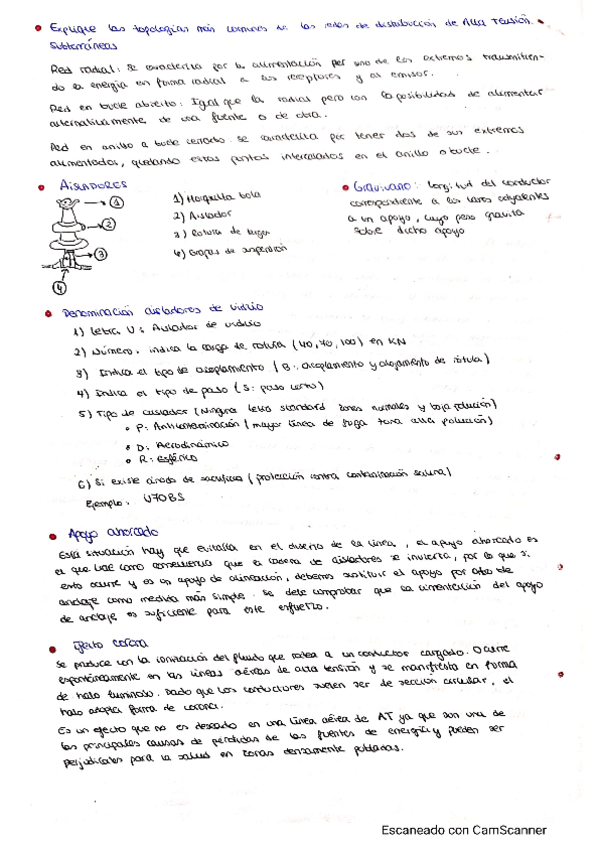 Explique las topologías más comunes de las redes de distribución de Alta Tensión
Subterráneas
Red radial: Se caracteriza por la alimentación por uno de los extremos transmitien-
do la energía en forma radial a los receptores y al emisor.
Red en bucle abierto: Igual que la radial pero con la posibilidad de alimentar
alternativamente de una fuente o de otra.
Red en anillo o bucle cerrado se caracteriza por tener dos de sus extremos
alimentados, quedando estos puntos intercalados en el anillo o bucle.
AISLADORES
1
2
3
4
1) Horquilla bola
2) Aislador
3) Rotula de
4) Grapas de suspensión
Gravivano: longitud del conductor
correspondiente a los vanos adyacentes
a un apoyo, cuyo peso gravita
sobre dicho apoyo
Denominación aisladores de vidrio
1) Letra U: Aislador de vidrio
2) Número: indica la carga de rotura (40, 70, 100) en KN
3) Indica el tipo de acoplamiento (B: acoplamiento y alojamiento de rótula)
4) Indica el tipo de paso (S: paso corto)
5) Tipo de aislador (Ninguna letra standard zonas normales y baja polución)
P: Anticontaminación (mayor línea de fuga para alta polución)
D: Aerodinámico
R: Esférico
6) Si existe ánodo de sacrificio (protección contra contaminación salina)
Ejemplo: U70BS
Apoyo ahorcado
Está situación hay que evitarla en el diseño de la línea, el apoyo ahorcado es
el que trae como consecuencia que la cadena de aisladores se invierta, por lo que si
esto ocurre y es un apoyo de alineación, debemos sustituir el apoyo por otro de
anclaje como medida más simple. Se debe comprobar que la cimentación del apoyo
de anclaje es suficiente para este esfuerzo.
Efecto corona
Se produce con la ionización del fluido que rodea a un conductor cargado. Ocurre
espontáneamente en las líneas aéreas de alta tensión y se manifiesta en forma
de halo luminoso. Dado que los conductores suelen ser de sección circular, el
halo adopta forma de corona.
Es un efecto que no es deseado en una línea aérea de AT ya que son una de
las principales causas de pérdidas de las fuentes de energía y pueden ser
perjudiciales para la salud en zonas densamente pobladas.
Escaneado con CamScanner